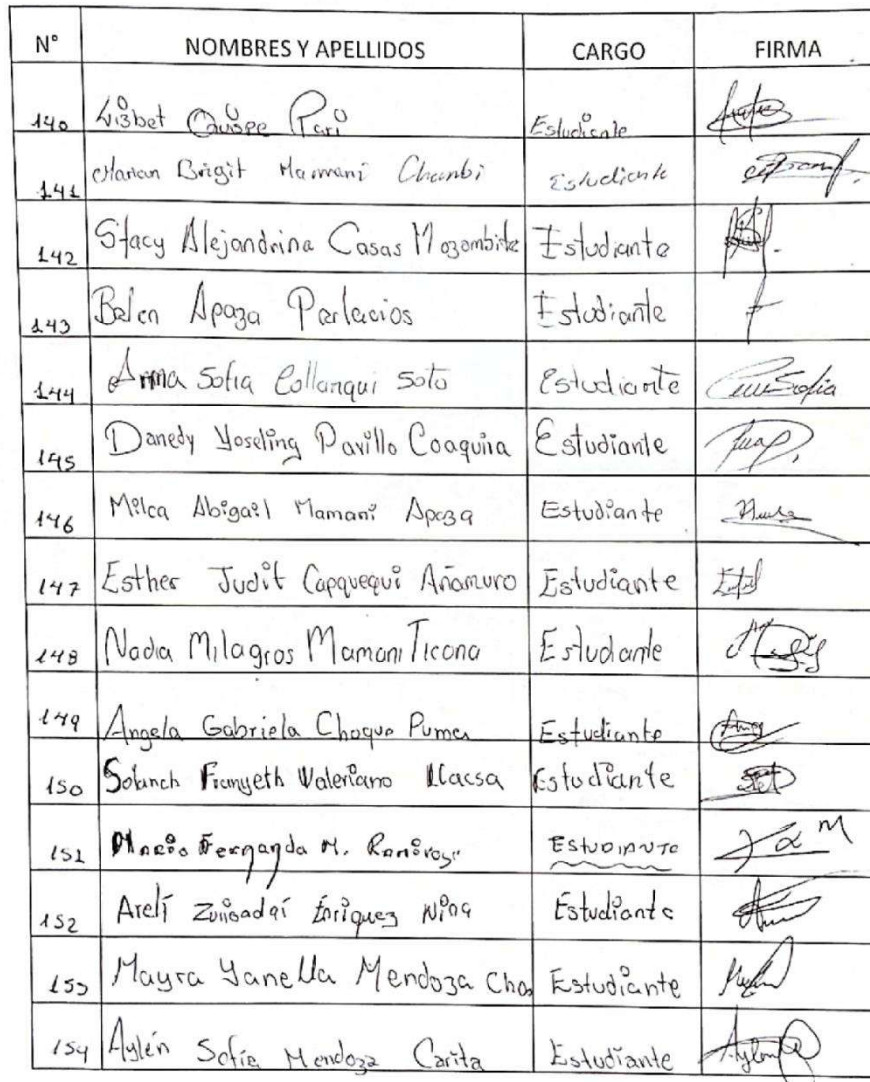 N° NOMBRES Y APELLIDOS CARGO FIRMA
140 Lizbet Quispe Pari Estudiante
141 Marian Brigit Mamani Chambi Estudiante
142 Stacy Alejandrina Casas Mozombite Estudiante
143 Belen Apaza Parlacios Estudiante
144 Anna Sofia Collanqui Soto Estudiante Sofia
145 Danedy Yoseling Pavillo Coaquira Estudiante
146 Milca Abigail Mamani Apaza Estudiante
147 Esther Judit Capquequi Añamuro Estudiante
148 Nadia Milagros Mamani Ticona Estudiante
149 Angela Gabriela Choque Puma Estudiante
150 Solanch Franyeth Valeriano Llacsa Estudiante
151 Maria Fernanda M. Ramirez Estudiante
152 Arelí Enriquez Nina Estudiante
153 Mayra Yanella Mendoza Cho Estudiante
154 Aylén Sofia Mendoza Carita Estudiante